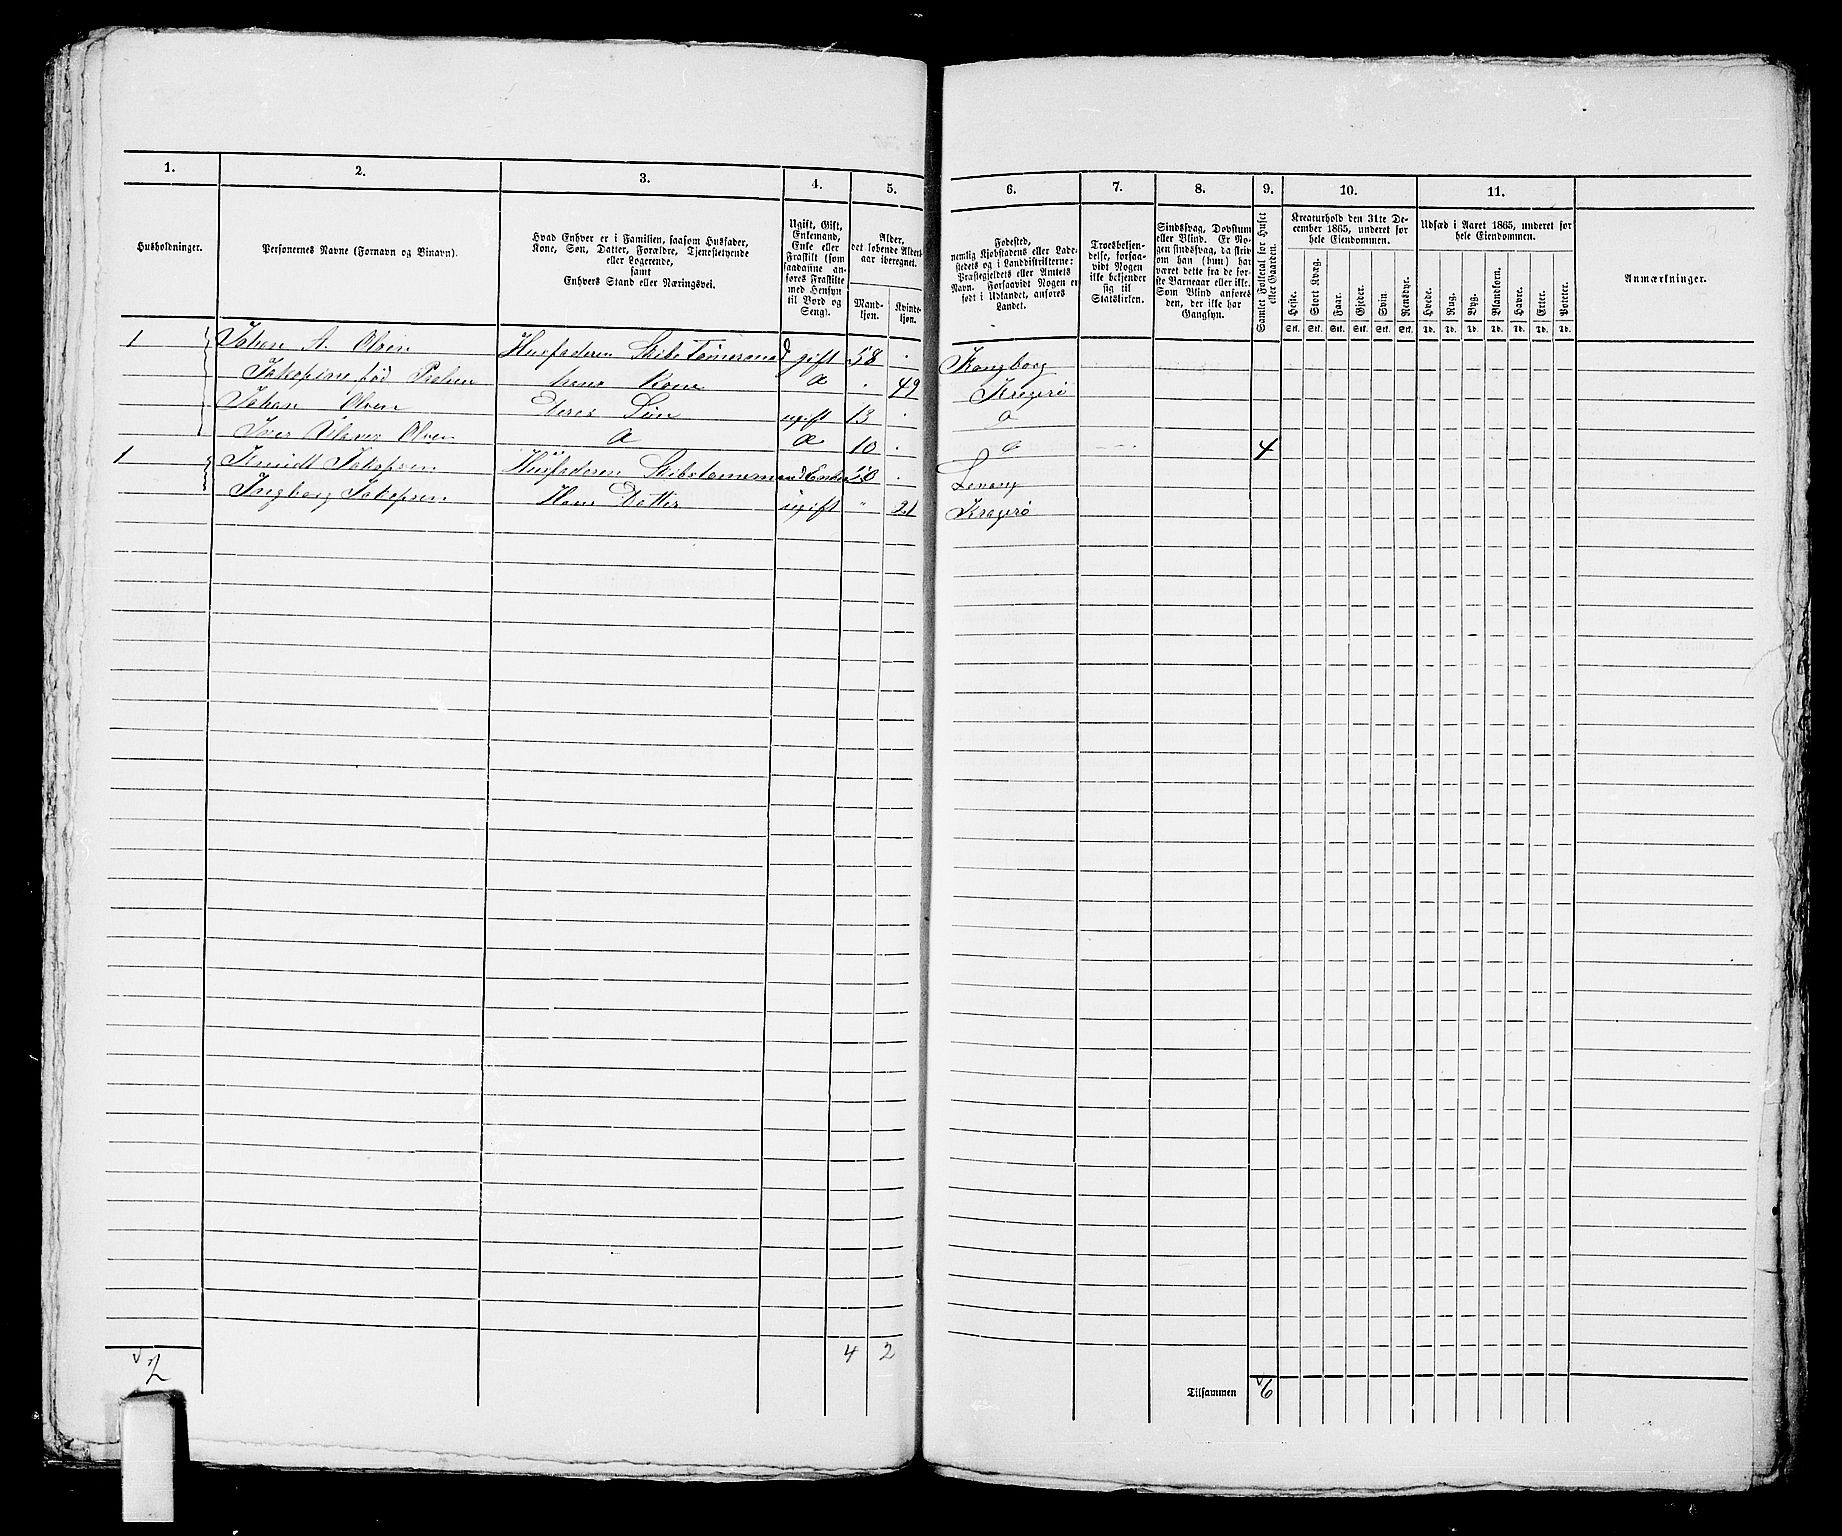 1. 2. 3. 4. 5. 6. 7. 8. 9. 10. 11.
Husholdninger.
Personernes Navne (Fornavn og Binavn).
Hvad Enhver er i Familien, saasom Husfader,
Kone, Søn, Datter, Forældre, Tjenestetyende
eller Logerende,
samt
Enhvers Stand eller Næringsvei.
Ugift, Gift,
Enkemand,
Enke eller
Fraskilt (som
saadanne an-
føres Fraskilte
med Hensyn
til Bord og
Seng).
Alder,
det løbende Alders-
aar iberegnet.
Mand-
kjøn.
Kvinde-
kjøn.
Fødested,
nemlig Kjøbstadens eller Lade-
stedets og i Landdistrikterne:
Præstegjeldets eller Amtets
Navn. Forsaavidt Nogen er
født i Udlandet, anføres
Landet.
Troesbekjen-
delse, forsaa-
vidt Nogen
ikke bekjender
sig til
Statskirken.
Sindssvag, Døvstum
eller Blind. Er No-
gen sindssvag, da skriv
om han (hun) har
været dette fra de før-
ste Barneaar eller ikke.
Som Blind anføres
den, der ikke har
Gangsyn.
Samlet Folketal for Huset
eller Gaarden.
Kreaturhold den 31te De-
cember 1865, underet for
hele Eiendommen.
Heste. Stort Kvæg. Faar. Gjeder. Svin Rensdyr.
Stk. Stk. Stk. Stk. Stk. Stk.
Udsæd i Aaret 1865, underet for
hele Eiendommen.
Hvede. Rug. Byg. Blandkorn. Havre. Erter. Poteter.
Td. Td. Td. Td. Td. Td. Td.
Anmærkninger.
1 Johan A. Olsen Husfaderen Skibs Tømermand gift 58 Kongberg
Jakopine fød hans Kone 49 Kragerø
Johan Olsen deres Søn ugift 13
Iver Olsen 10 4
1 Knudt Jakopsen Husfaderen Skibstømmermand 50
Ingborg Jakopsen Hans Datter ugift " 21 Kragerø
2 4 2
Tilsammen 6